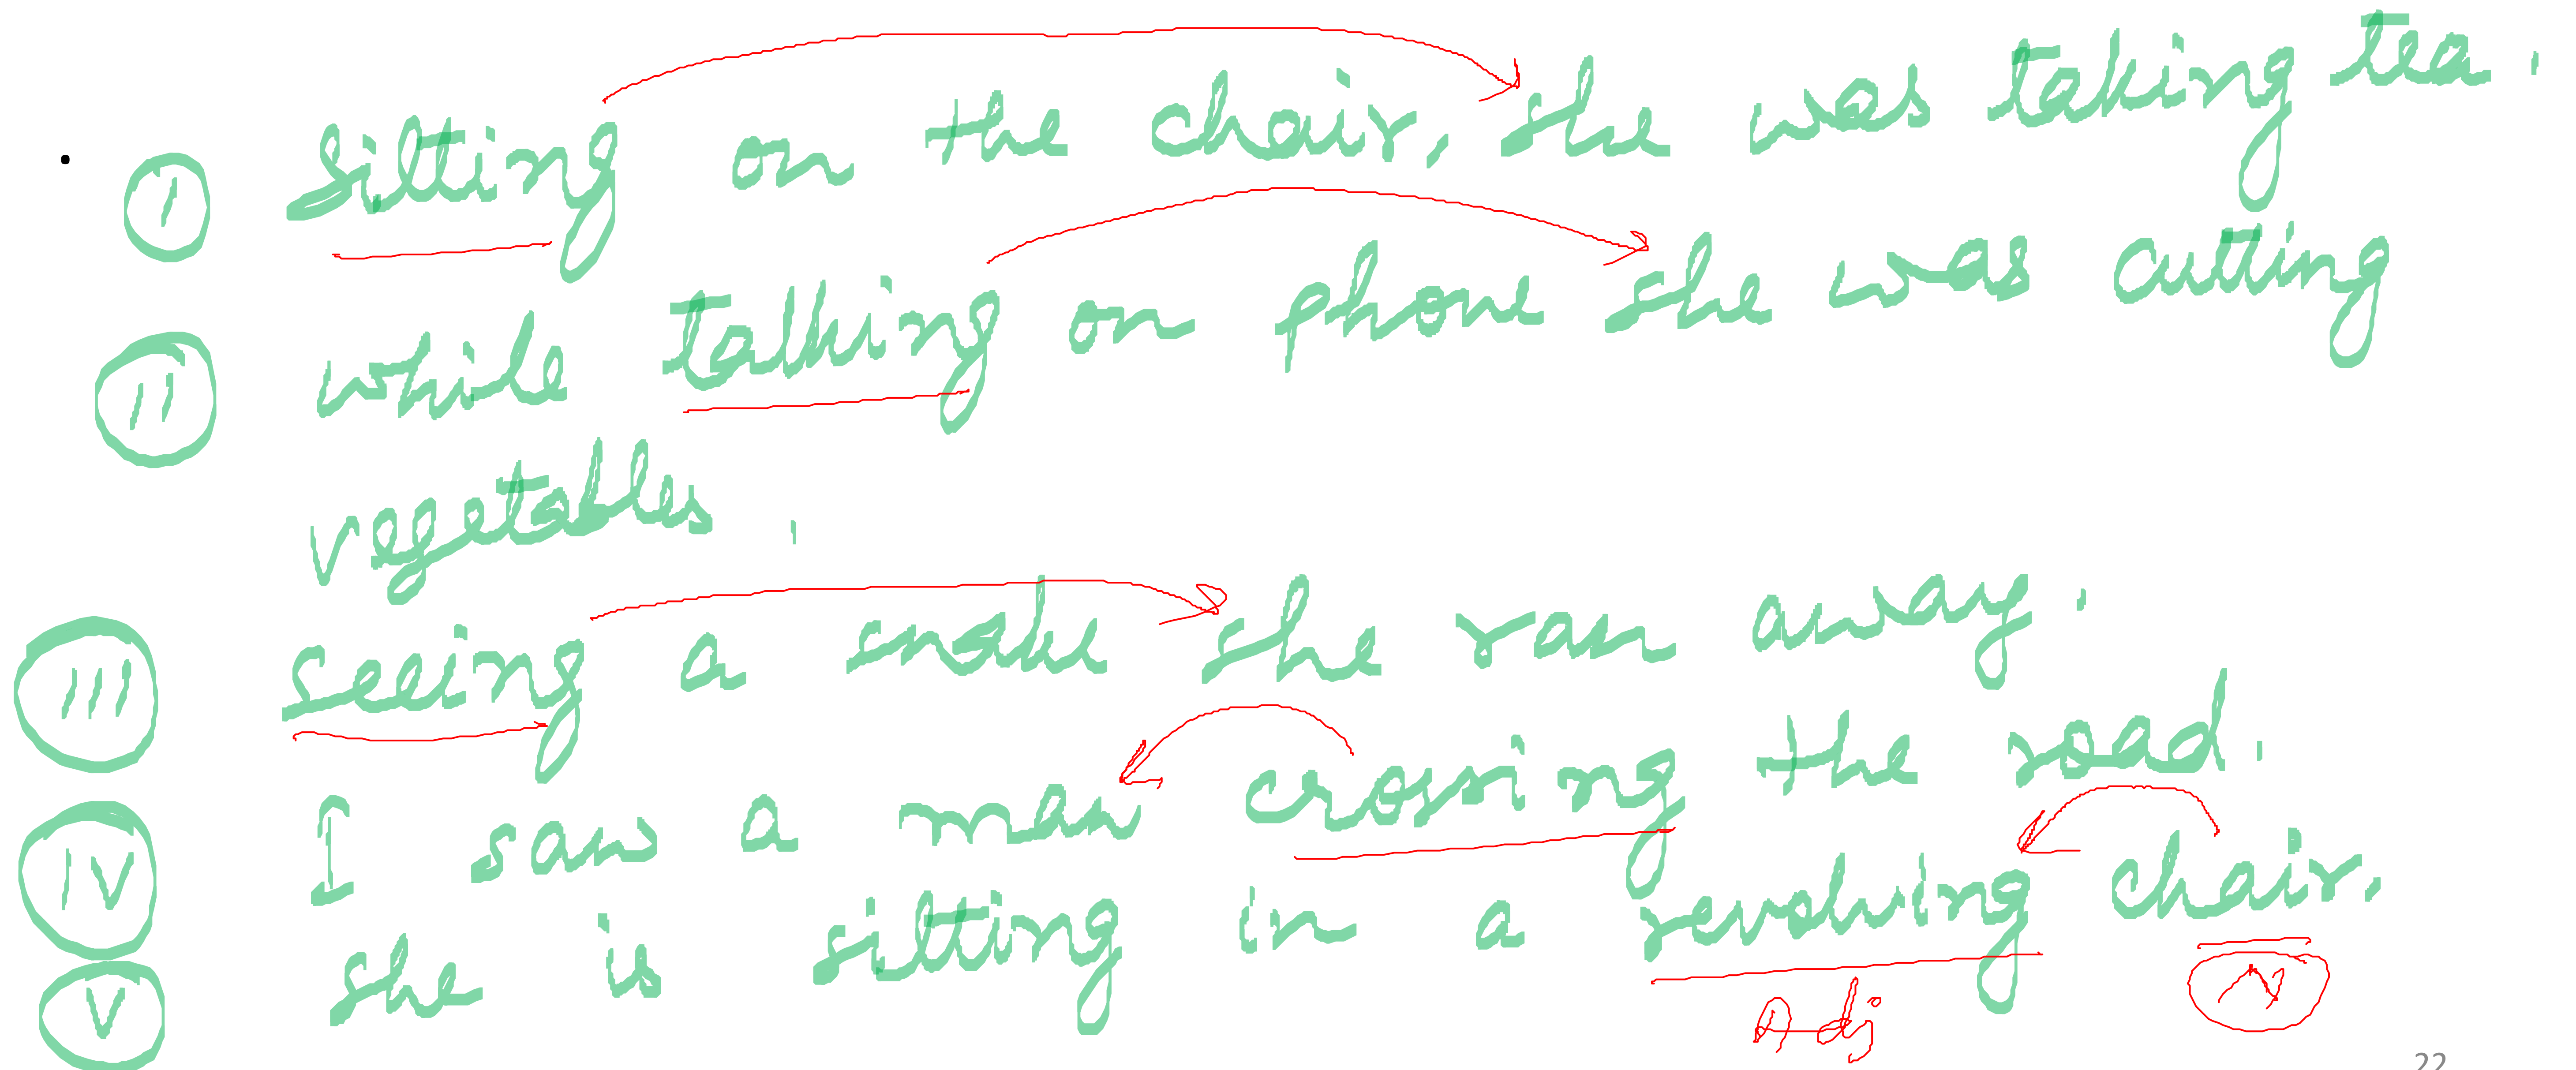 I sitting on the chair, she was taking tea.
II while talking on phone she was cutting
vegetables.
III seeing a snake she ran away.
IV I saw a man crossing the road.
V she is sitting in a revolving chair.
Adj N
22